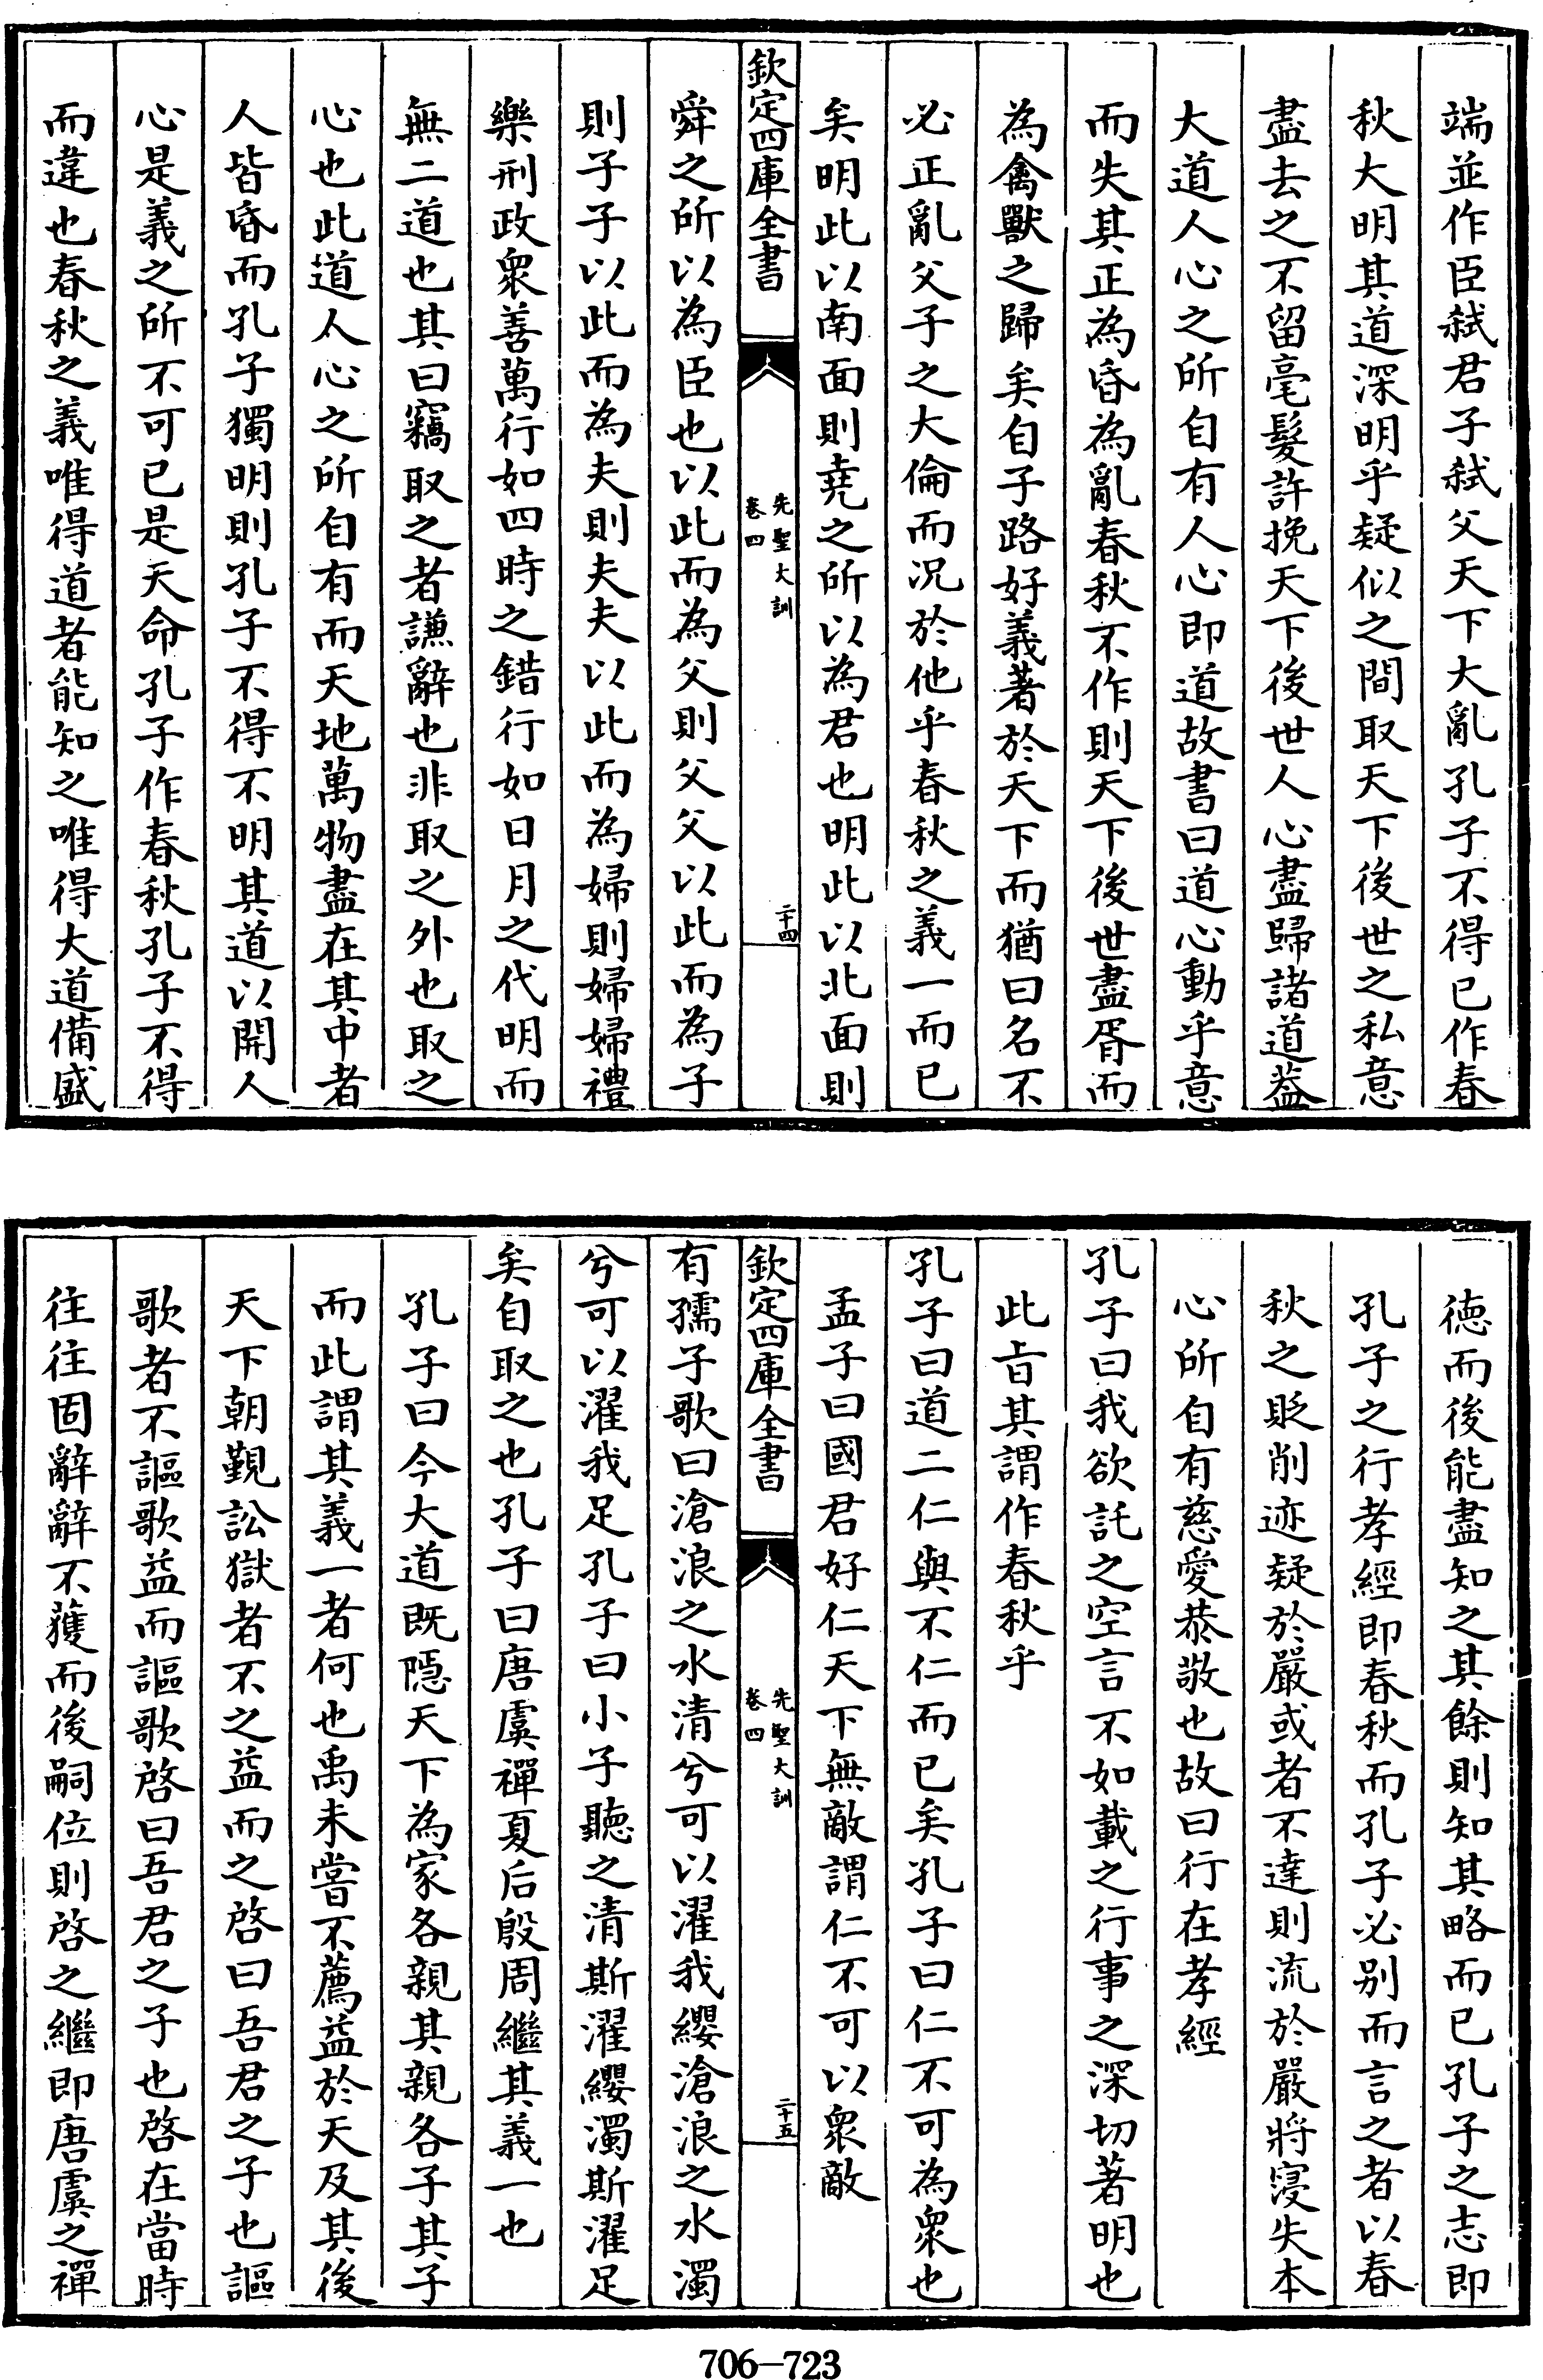 端並作臣弑君子弑父天下大亂孔子不得已作春
秋大明其道深明乎疑似之間取天下後世之私意
盡去之不留毫髮許挽天下後世人心盡歸諸道葢
大道人心之所自有人心即道故書曰道心動乎意
而失其正為昏為亂春秋不作則天下後世盡胥而
為禽獸之歸矣自子路好義著於天下而猶曰名不
必正亂父子之大倫而况於他乎春秋之義一而已
矣明此以南面則堯之所以為君也明此以北面則
欽定四庫全書
先聖大訓
卷四
二十四
舜之所以為臣也以此而為父則父父以此而為子
則子子以此而為夫則夫夫以此而為婦則婦婦禮
樂刑政衆善萬行如四時之錯行如日月之代明而
無二道也其曰竊取之者謙辭也非取之外也取之
心也此道人心之所自有而天地萬物盡在其中者
人皆昏而孔子獨明則孔子不得不明其道以開人
心是義之所不可已是天命孔子作春秋孔子不得
而違也春秋之義唯得道者能知之唯得大道備盛
德而後能盡知之其餘則知其略而已孔子之志即
孔子之行孝經即春秋而孔子必别而言之者以春
秋之貶削迹疑於嚴或者不達則流於嚴將寖失本
心所自有慈愛恭敬也故曰行在孝經
孔子曰我欲託之空言不如載之行事之深切著明也
此㫖其謂作春秋乎
孔子曰道二仁與不仁而已矣孔子曰仁不可為衆也
孟子曰國君好仁天下無敵謂仁不可以衆敵
欽定四庫全書
先聖大訓
卷四
二十五
有孺子歌曰滄浪之水清兮可以濯我纓滄浪之水濁
兮可以濯我足孔子曰小子聽之清斯濯纓濁斯濯足
矣自取之也孔子曰唐虞禪夏后殷周繼其義一也
孔子曰今大道既隱天下為家各親其親各子其子
而此謂其義一者何也禹未嘗不薦益於天及其後
天下朝覲訟獄者不之益而之啓曰吾君之子也謳
歌者不謳歌益而謳歌啓曰吾君之子也啓在當時
往往固辭辭不獲而後嗣位則啓之繼即唐虞之禪
706—723